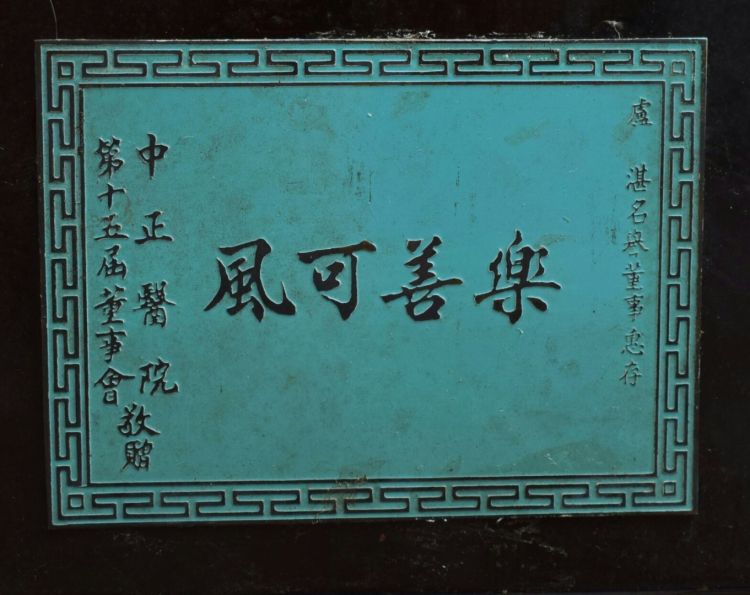 盧 湛名譽董事惠存
樂善可風
中正醫院
第十五屆董事會
敬贈